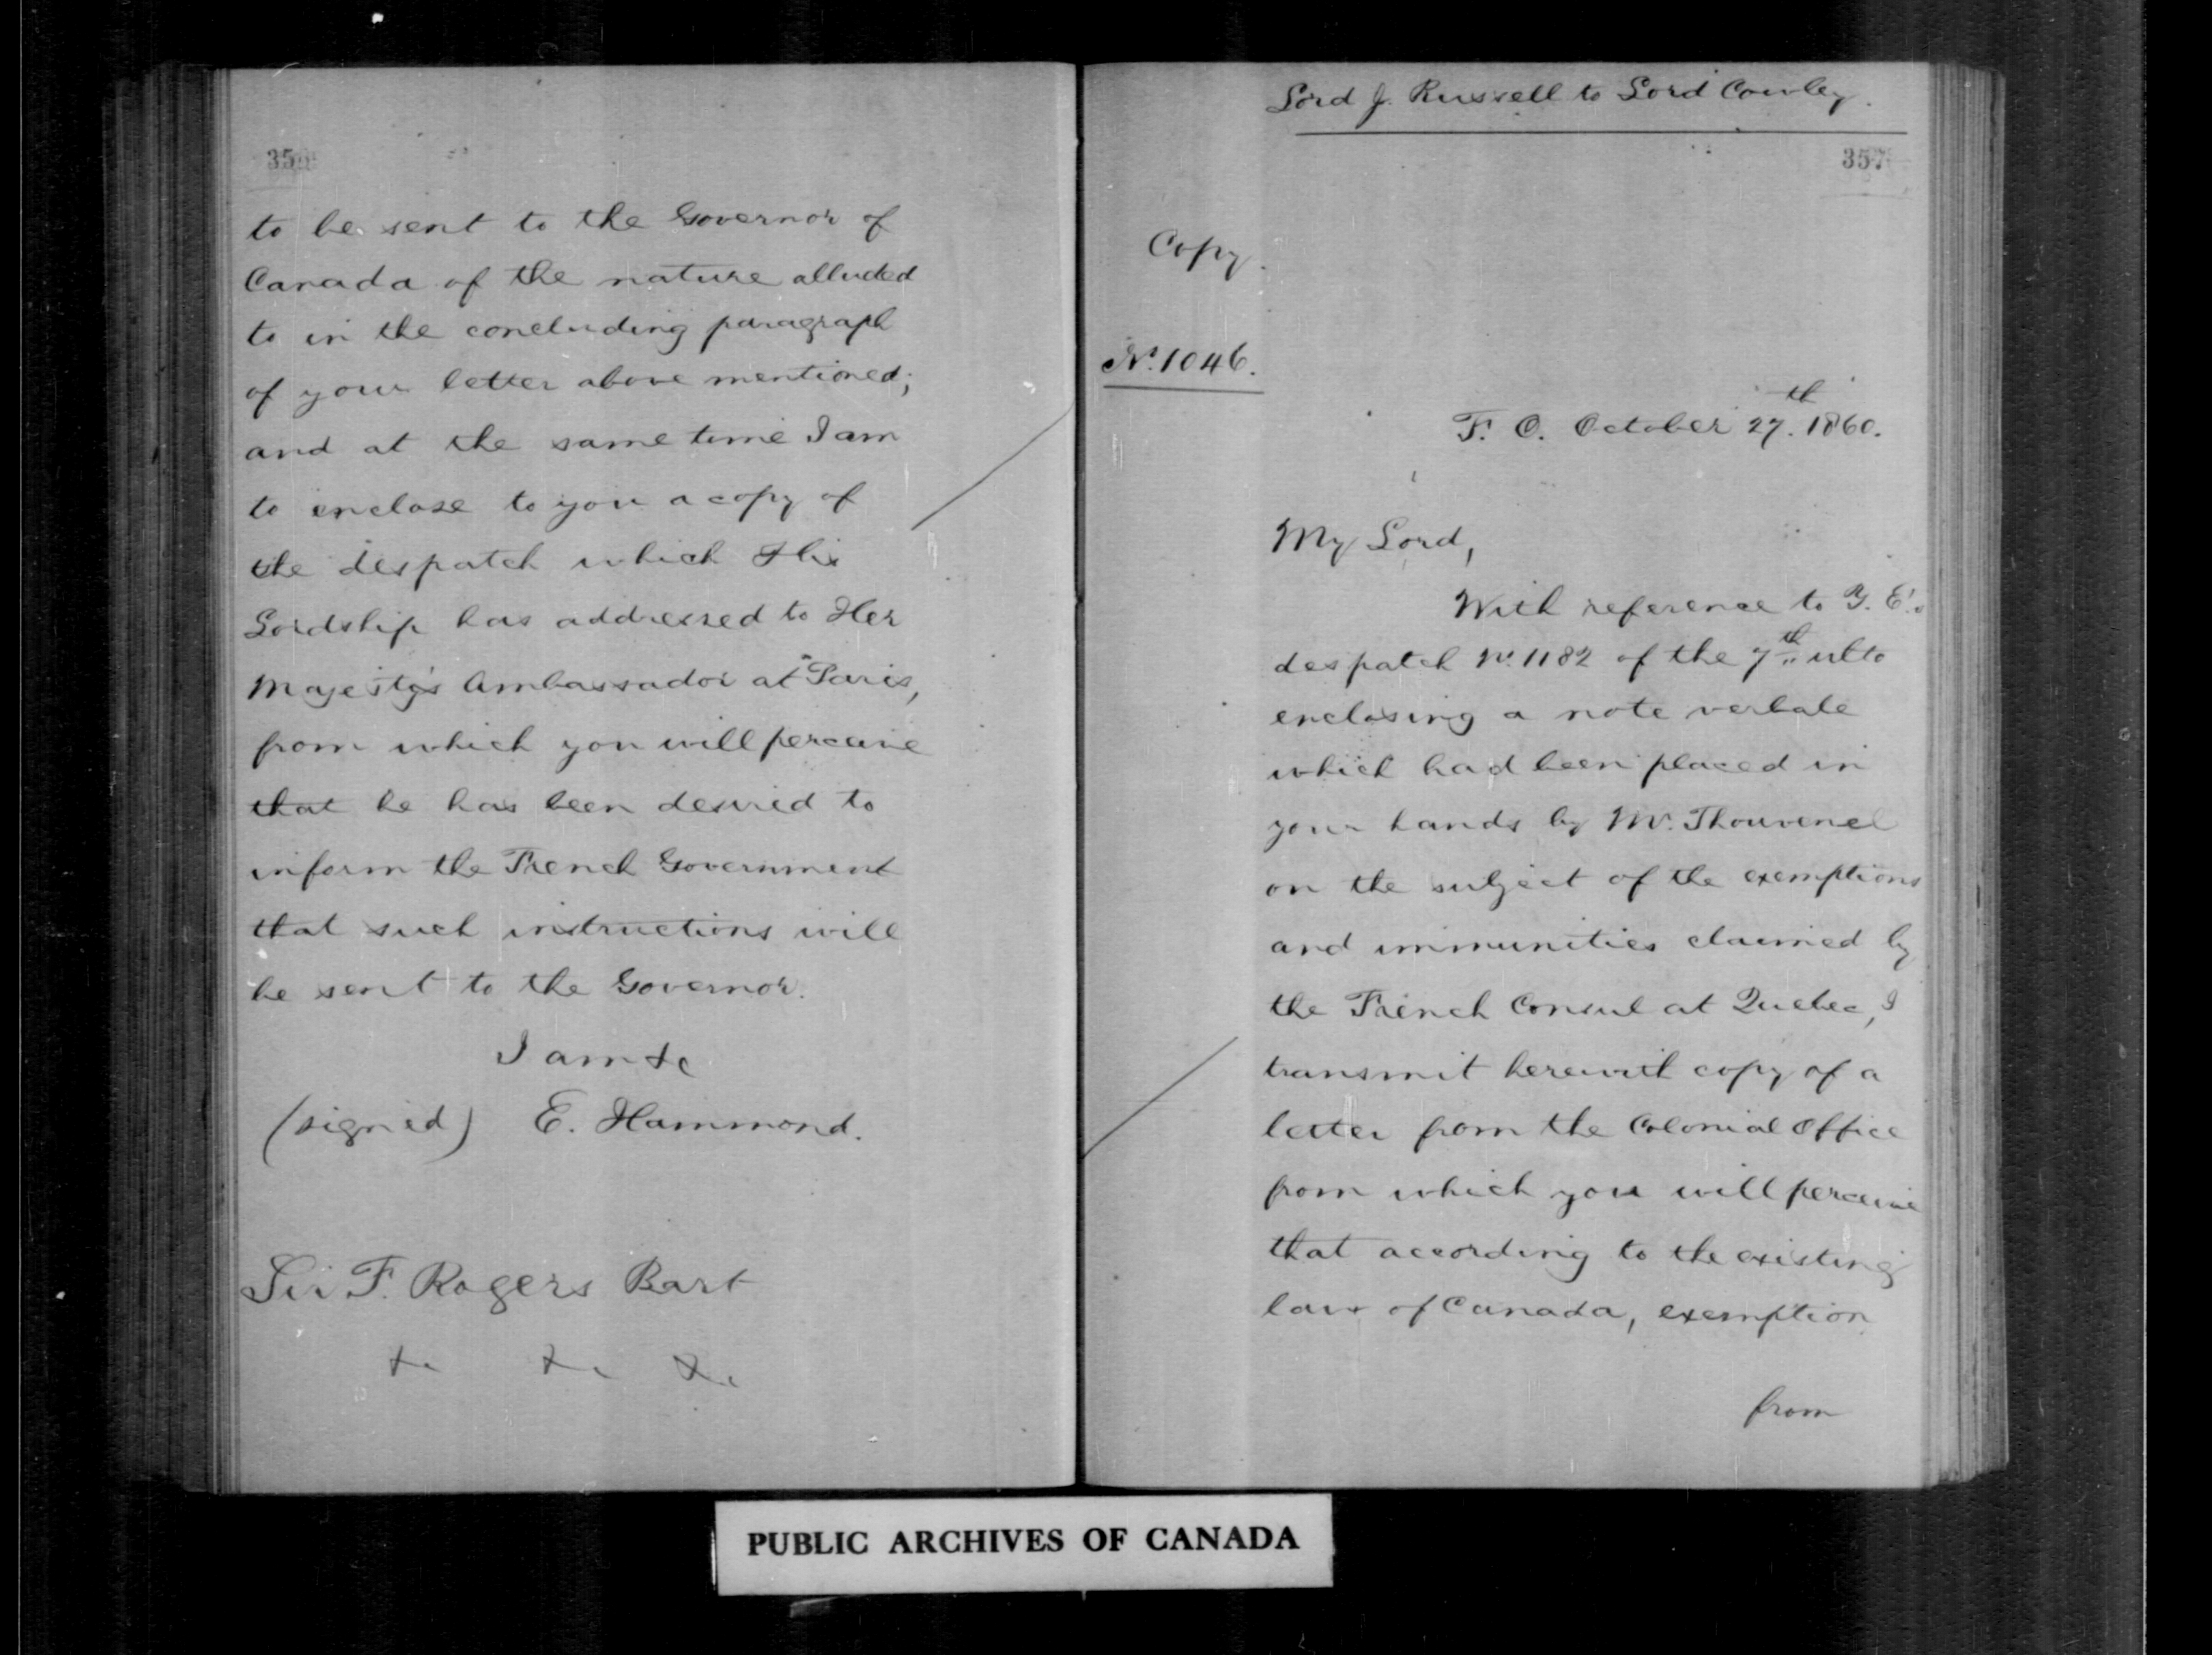 to be sent to the Governor of
Canada of the nature alluded
to in the concluding paragraph
of your letter above mentioned;
and at the same time I am
to enclose to you a copy of
the despatch which His
Lordship has addressed to Her
Majesty's Ambassador at Paris,
from which you will perceive
that he has been desired to
inform the French Government
that such instructions will
be sent to the Governor.
I am &c
(signed) E. Hammond.
Sir F. Rogers Bart
&c &c &c
Lord J. Russell to Lord Cowley.
357
Copy.
No. 1046.
F. O. October 27th. 1860.
My Lord,
With reference to Y. E's
despatch No. 1182 of the 7th ulto
enclosing a note verbale
which had been placed in
your hands by Mr. Thouvenel
on the subject of the exemptions
and immunities claimed by
the French Consul at Quebec, I
transmit herewith copy of a
letter from the Colonial Office
from which you will perceive
that according to the existing
law of Canada, exemption
from
PUBLIC ARCHIVES OF CANADA